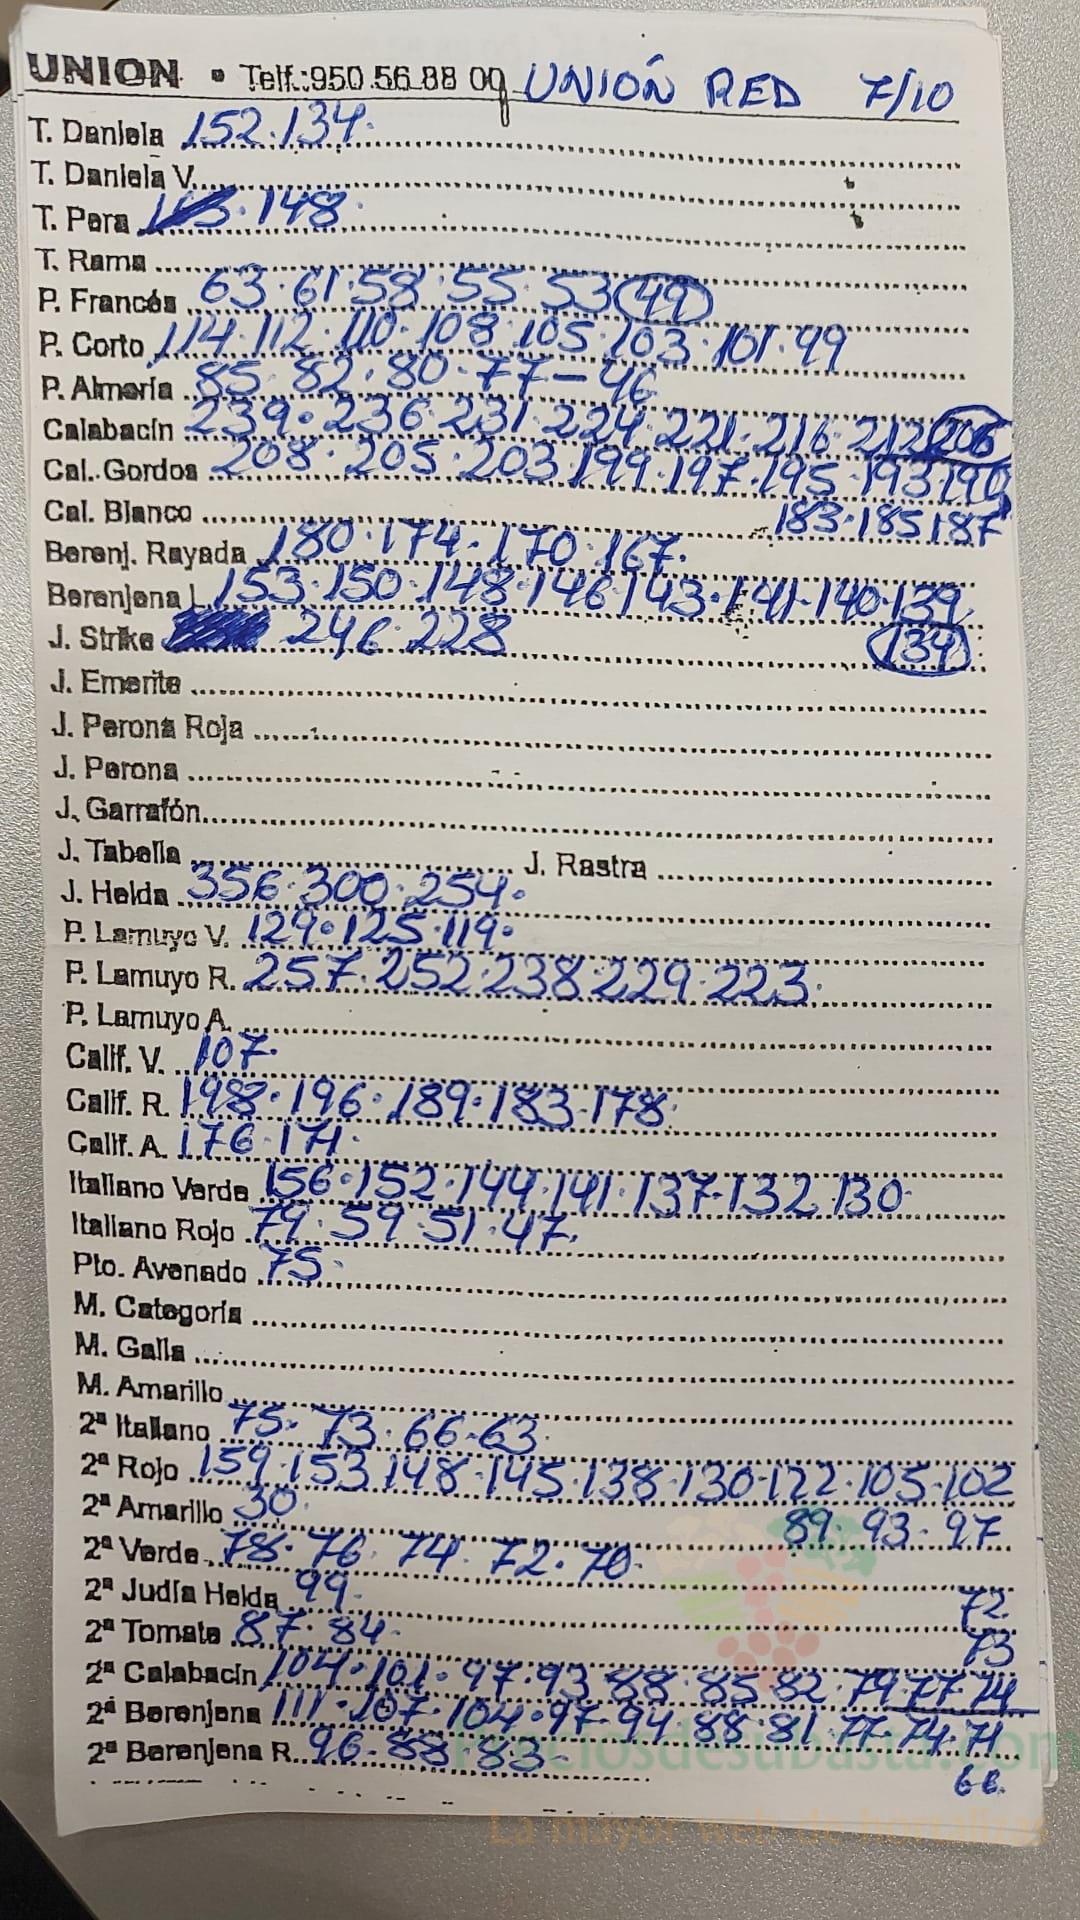 UNION • Telf.:950.56.88 09 UNIÓN RED 7/10
T. Daniela 152.134.
T. Daniela V.
T. Pera 148.
T. Rama
P. Francés 63.61.58.55.53 49
P. Corto 114.112.110.108.105.103.101.99
P. Almería 85.82.80.77-46
Calabacín 239.236.231.224.221.216.212 206
Cal. Gordos 208.205.203.199.197.195.193 190
Cal. Blanco 183.185 187
Berenj. Rayada 180.174.170.167.
Berenjena L 153.150.148.146 143.141.140.139
J. Strike 246.228 134
J. Emerite
J. Perona Roja
J. Perona
J. Garrafón
J. Tabella J. Rastra
J. Helda 356.300.254.
P. Lamuyo V. 129.125.119.
P. Lamuyo R. 257.252.238.229.223.
P. Lamuyo A.
Calif. V. 107.
Calif. R. 198.196.189.183.178.
Calif. A. 176.171.
Italiano Verde 156.152.144.141.137.132.130.
Italiano Rojo 79.59.51.47.
Pto. Avenado 75.
M. Categoría
M. Galia
M. Amarillo
2ª Italiano 75.73.66.63.
2ª Rojo 159.153.148.145.138.130.122.105.102
2ª Amarillo 30. 89.93.97
2ª Verde 78.76.74.72.70.
2ª Judía Helda 99. 72
2ª Tomate 87.84. 73
2ª Calabacín 104.101.97.93 88.85 82.79.77.74
2ª Berenjena 111.107.104.97.94.88.81.77.74.71
2ª Berenjena R. 96.88.83- 66.
preciosdesubasta.com
La mayor web de hortalizas